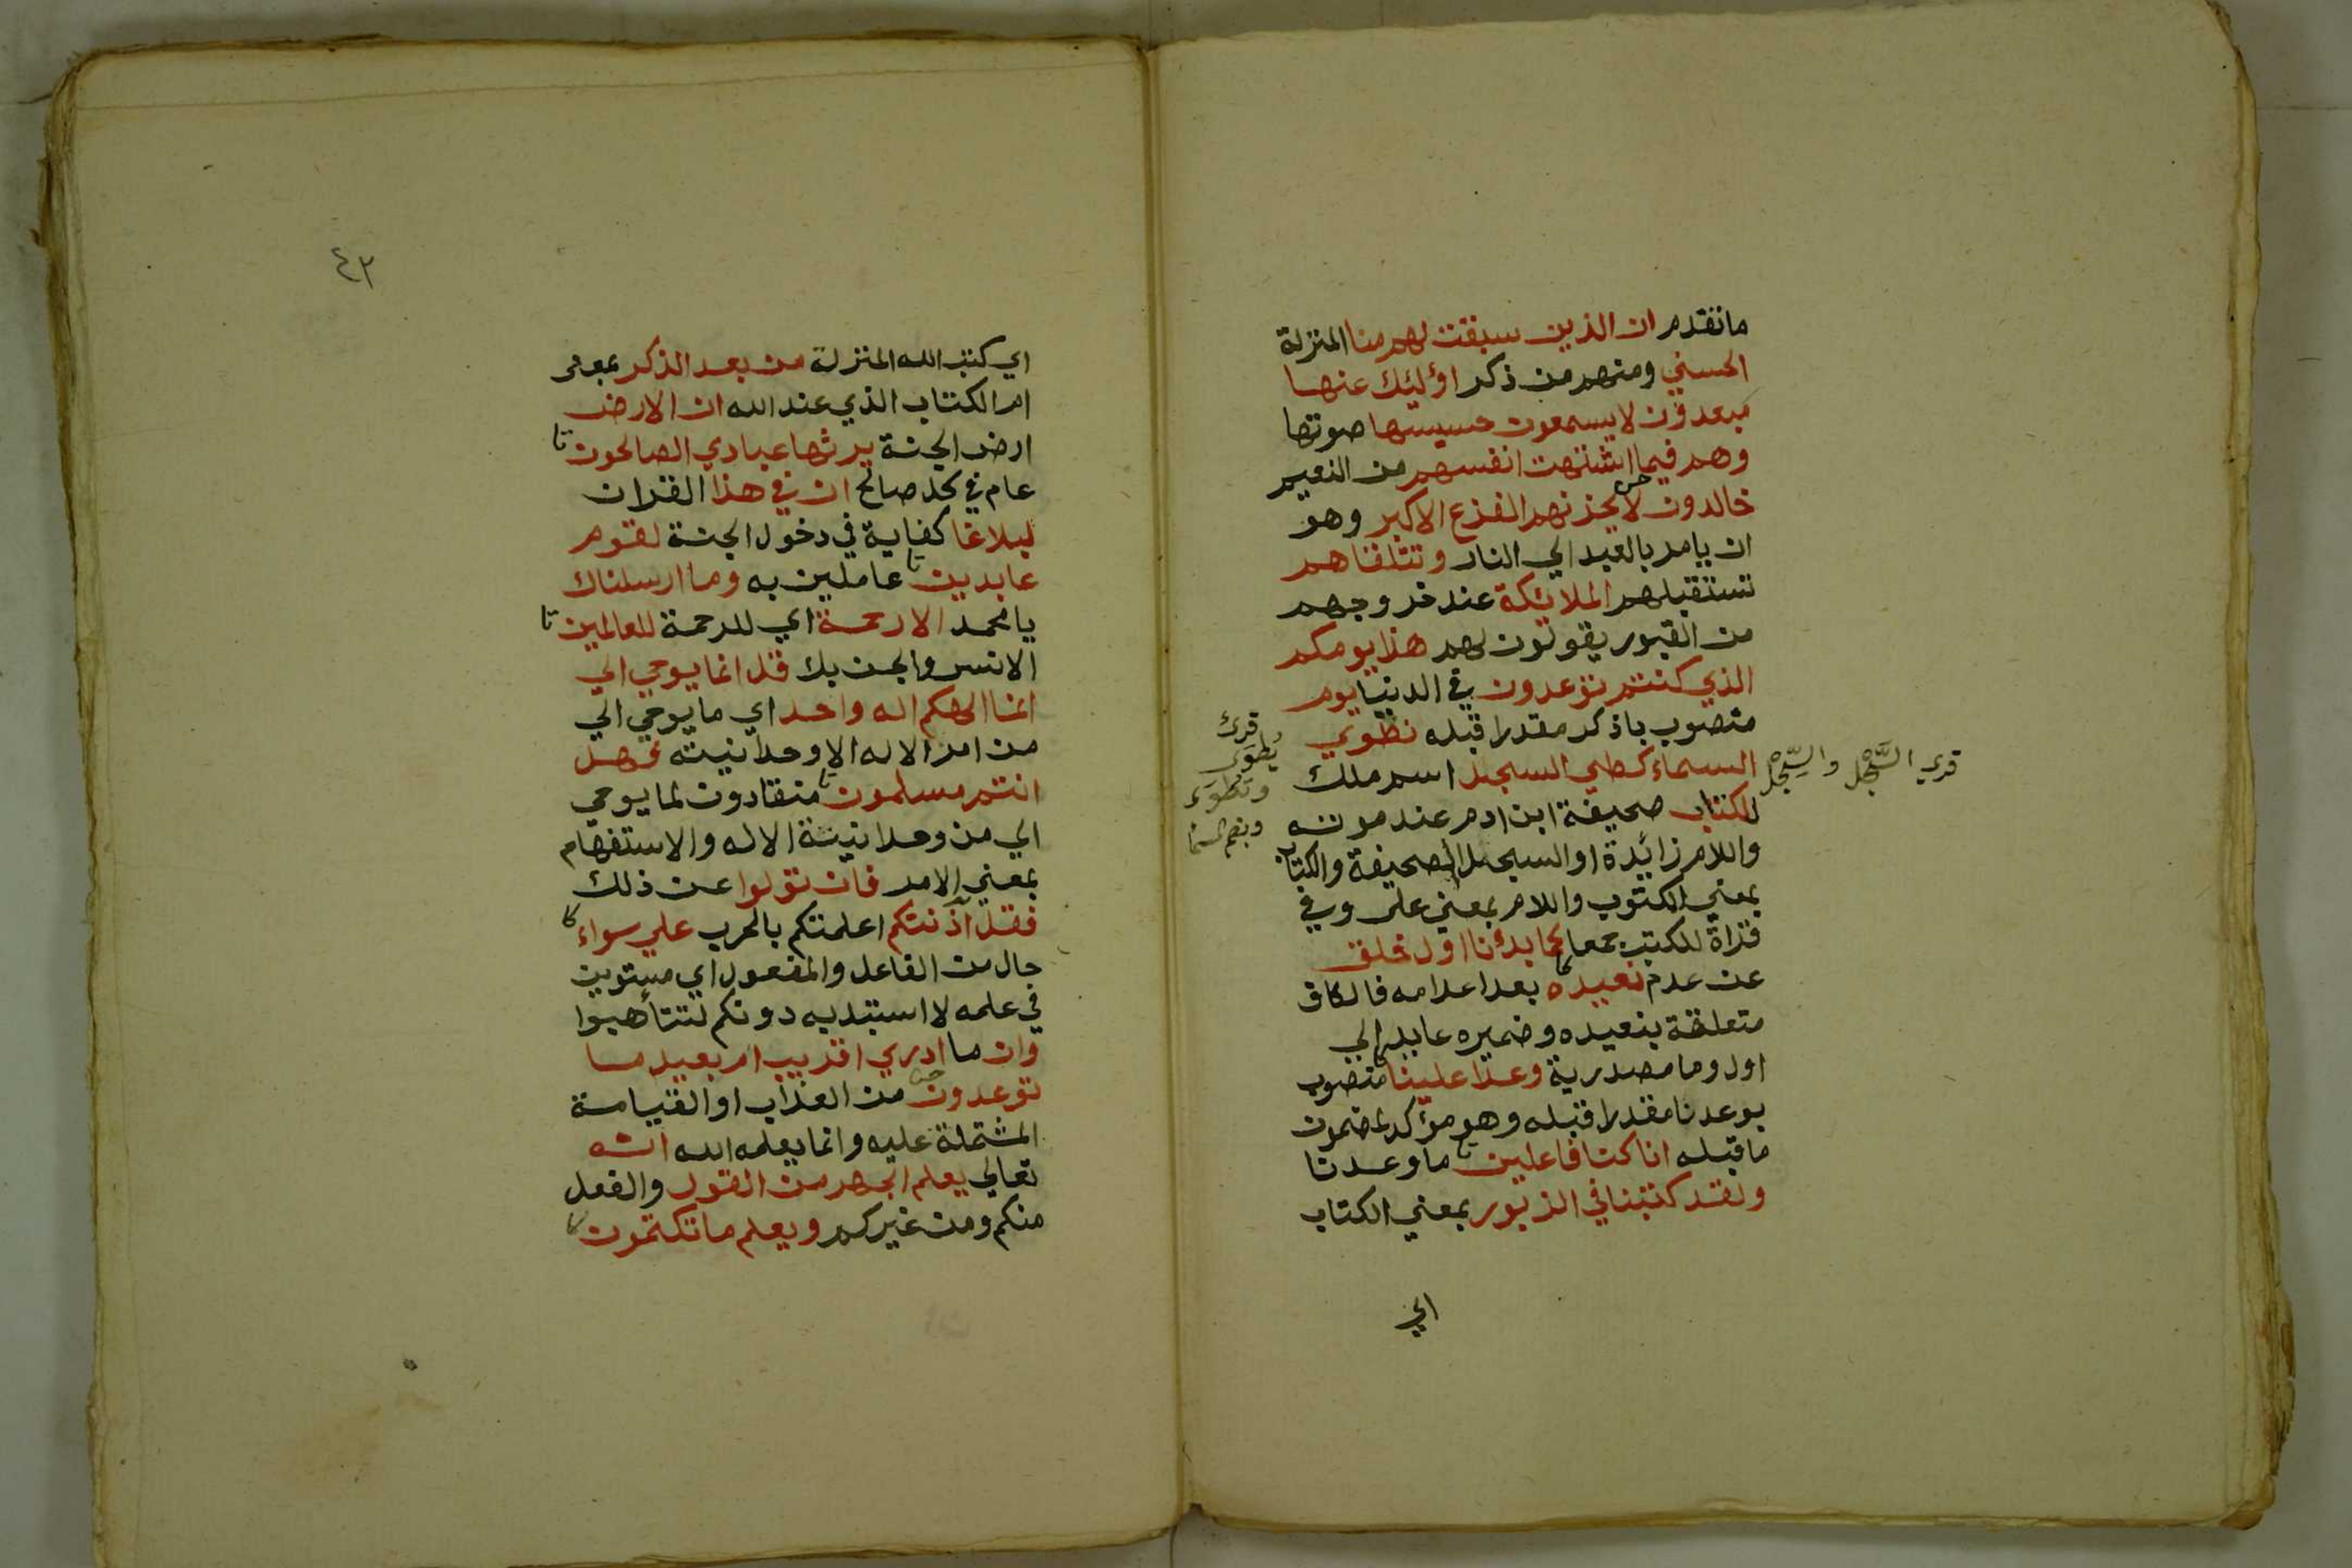 ما تقدم ان الذين سبقت لهم منا المنزلة
الحسني ومنهم من ذكر اؤليئك عنها
مبعدون لا يسمعون حسيسها صوتها
وهم فيما اشتهت انفسهم من النعيم
خالدون لا يحزنهم الفزع الاكبر وهو
ان يامر بالعبد الي النار وتتلقاهم
تستقبلهم الملائكة عند خروجهم
من القبور يقولون لهم هذا يومكم
الذي كنتم توعدون في الدنيا يوم
منصوب باذكر مقدرا قبله نطوي
السماء كطي السجل اسم ملك
للكتاب صحيفة ابن ادم عند موته
واللام زائدة او السجل الصحيفة والكتاب
بمعني المكتوب واللام بمعني على وفي
قراة للكتب جمعا كما بدأنا اول خلق
عن عدم نعيده بعد اعدامه فالكاف
متعلقة بنعيده وضميره عايد الي
اول وما مصدرية وعدا علينا منصوب
بوعدنا مقدرا قبله وهو مؤكد لمضمون
ما قبله انا كنا فاعلين ما وعدنا
ولقد كتبنا في الزبور بمعني الكتاب
الي
قري السَّجْل والسِّجْل
قرئ
يطوى
وتطوى
٤٢
اي كتب الله المنزلة من بعد الذكر بمعنى
ام الكتاب الذي عند الله ان الارض
ارض الجنة يرثها عبادي الصالحون
عام في كل صالح ان في هذا القران
لبلاغا كفاية في دخول الجنة لقوم
عابدين عاملين به وما ارسلناك
يا محمد الا رحمة اي للرحمة للعالمين
الانس والجن بك قل انما يوحي الي
انما الهكم اله واحد اي ما يوحي الي
من امر الاله الا وحدانيته فهل
انتم مسلمون منقادون لما يوحي
الي من وحدانية الاله والاستفهام
بمعني الامر فان تولوا عن ذلك
فقل آذنتكم اعلمتكم بالحرب علي سواء
حال من الفاعل والمفعول اي مستوين
في علمه لا استبد به دونكم لتتأهبوا
وان ما ادري اقريب ام بعيد ما
توعدون من العذاب او القيامة
المشتملة عليه وانما يعلمه الله انه
تعالي يعلم الجهر من القول والفعل
منكم ومن غيركم ويعلم ما تكتمون